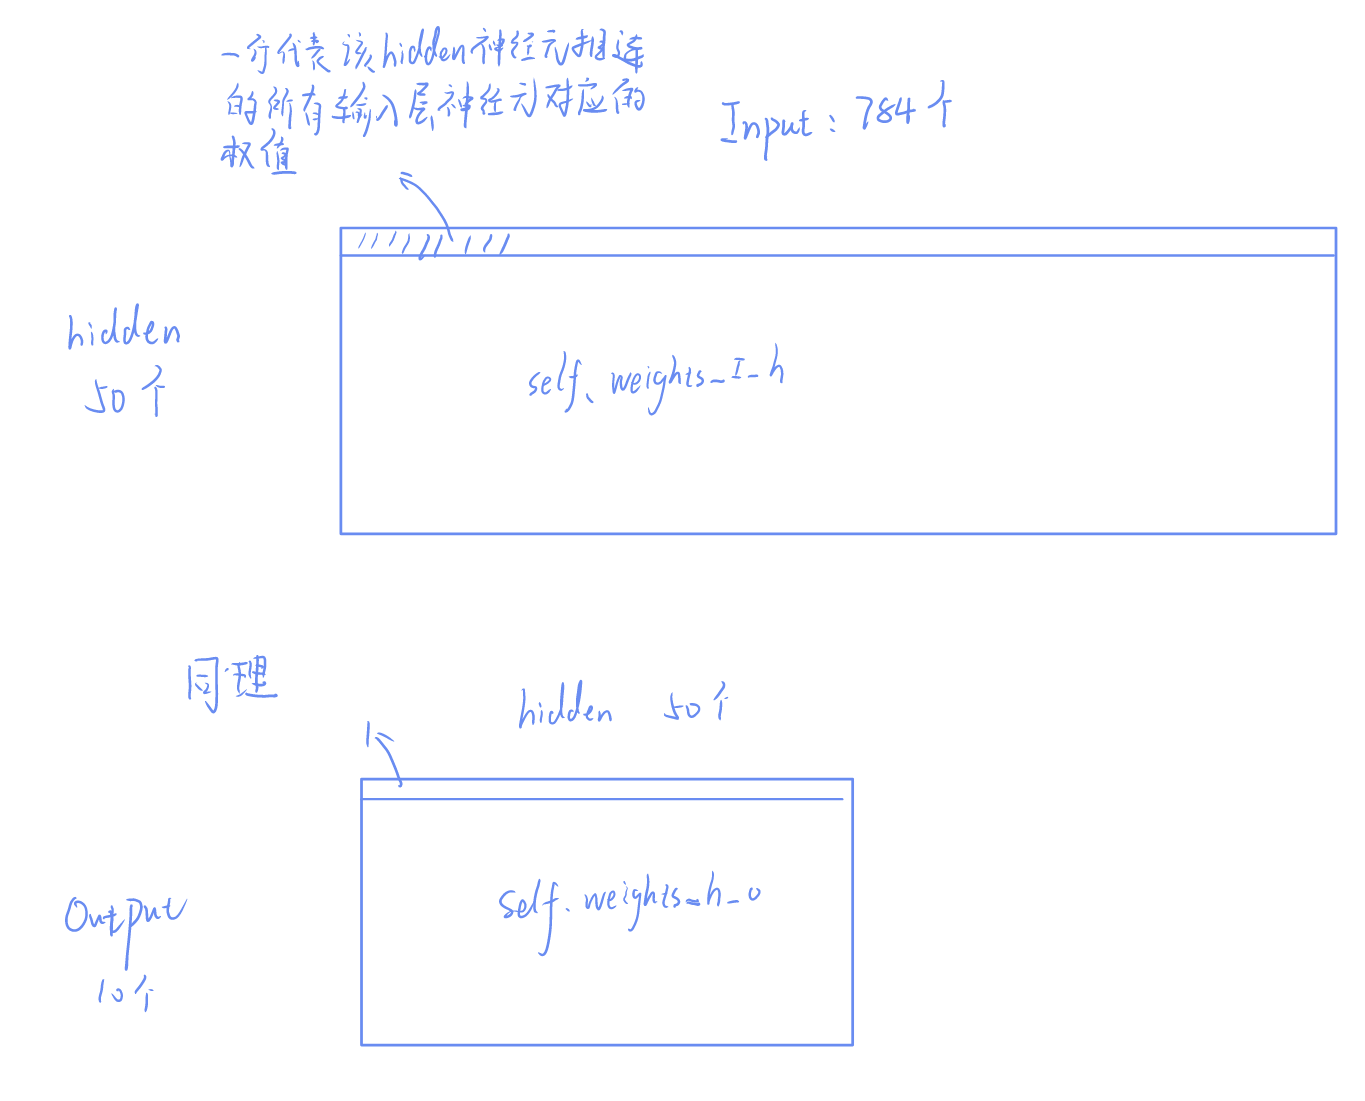 一行代表该hidden神经元相连
的所有输入层神经元对应的
权值
Input: 784个
hidden
50个
self、weights_I_h
同理
hidden 50个
self、weights_h_o
Output
10个